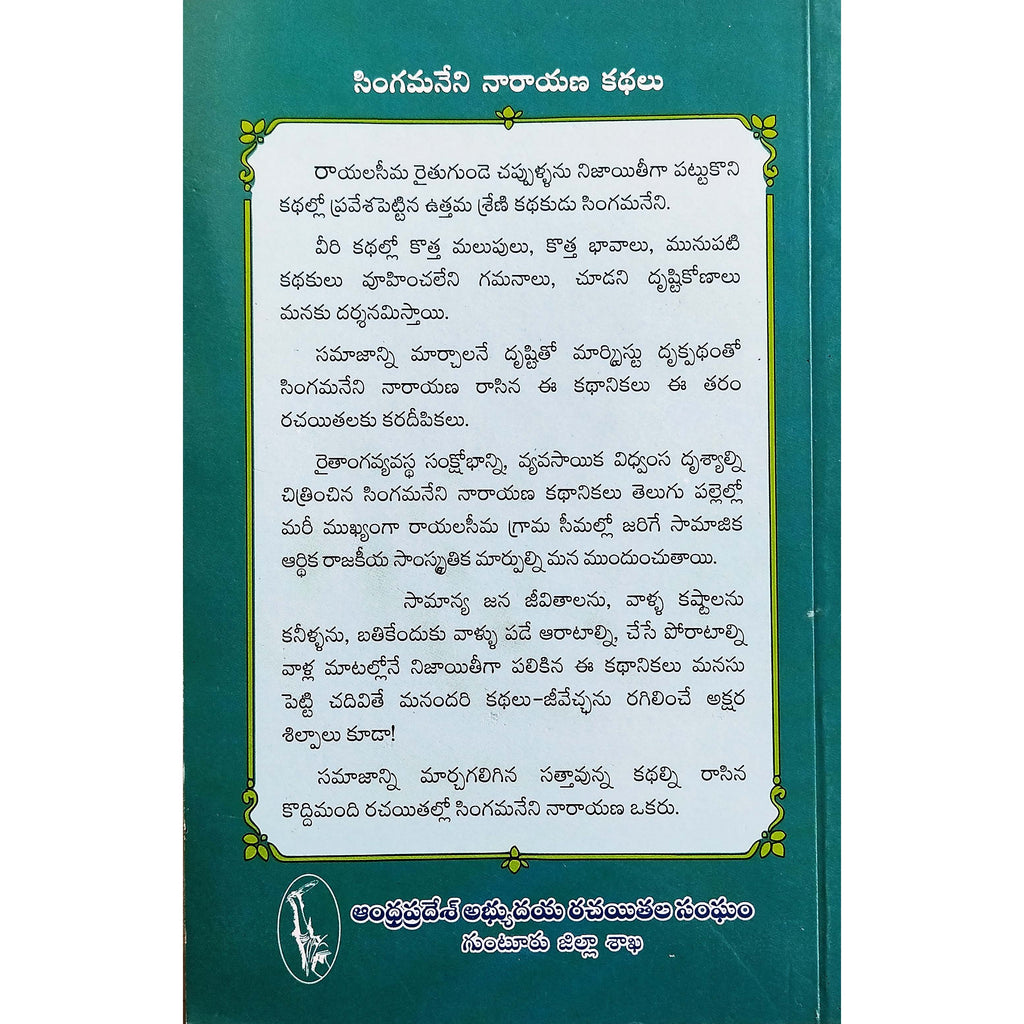 సింగమనేని నారాయణ కథలు
రాయలసీమ రైతుగుండె చప్పుళ్ళను నిజాయితీగా పట్టుకొని
కథల్లో ప్రవేశపెట్టిన ఉత్తమ శ్రేణి కథకుడు సింగమనేని.
వీరి కథల్లో కొత్త మలుపులు, కొత్త భావాలు, మునుపటి
కథకులు వూహించలేని గమనాలు, చూడని దృష్టికోణాలు
మనకు దర్శనమిస్తాయి.
సమాజాన్ని మార్చాలనే దృష్టితో మార్క్సిస్టు దృక్పథంతో
సింగమనేని నారాయణ రాసిన ఈ కథానికలు ఈ తరం
రచయితలకు కరదీపికలు.
రైతాంగవ్యవస్థ సంక్షోభాన్ని, వ్యవసాయిక విధ్వంస దృశ్యాల్ని
చిత్రించిన సింగమనేని నారాయణ కథానికలు తెలుగు పల్లెల్లో
మరీ ముఖ్యంగా రాయలసీమ గ్రామ సీమల్లో జరిగే సామాజిక
ఆర్థిక రాజకీయ సాంస్కృతిక మార్పుల్ని మన ముందుంచుతాయి.
సామాన్య జన జీవితాలను, వాళ్ళ కష్టాలను
కనీళ్ళను, బతికేందుకు వాళ్ళు పడే ఆరాటాల్ని, చేసే పోరాటాల్ని
వాళ్ల మాటల్లోనే నిజాయితీగా పలికిన ఈ కథానికలు మనసు
పెట్టి చదివితే మనందరి కథలు-జీవేచ్ఛను రగిలించే అక్షర
శిల్పాలు కూడా!
సమాజాన్ని మార్చగలిగిన సత్తావున్న కథల్ని రాసిన
కొద్దిమంది రచయితల్లో సింగమనేని నారాయణ ఒకరు.
ఆంధ్రప్రదేశ్ అభ్యుదయ రచయితల సంఘం
గుంటూరు జిల్లా శాఖ